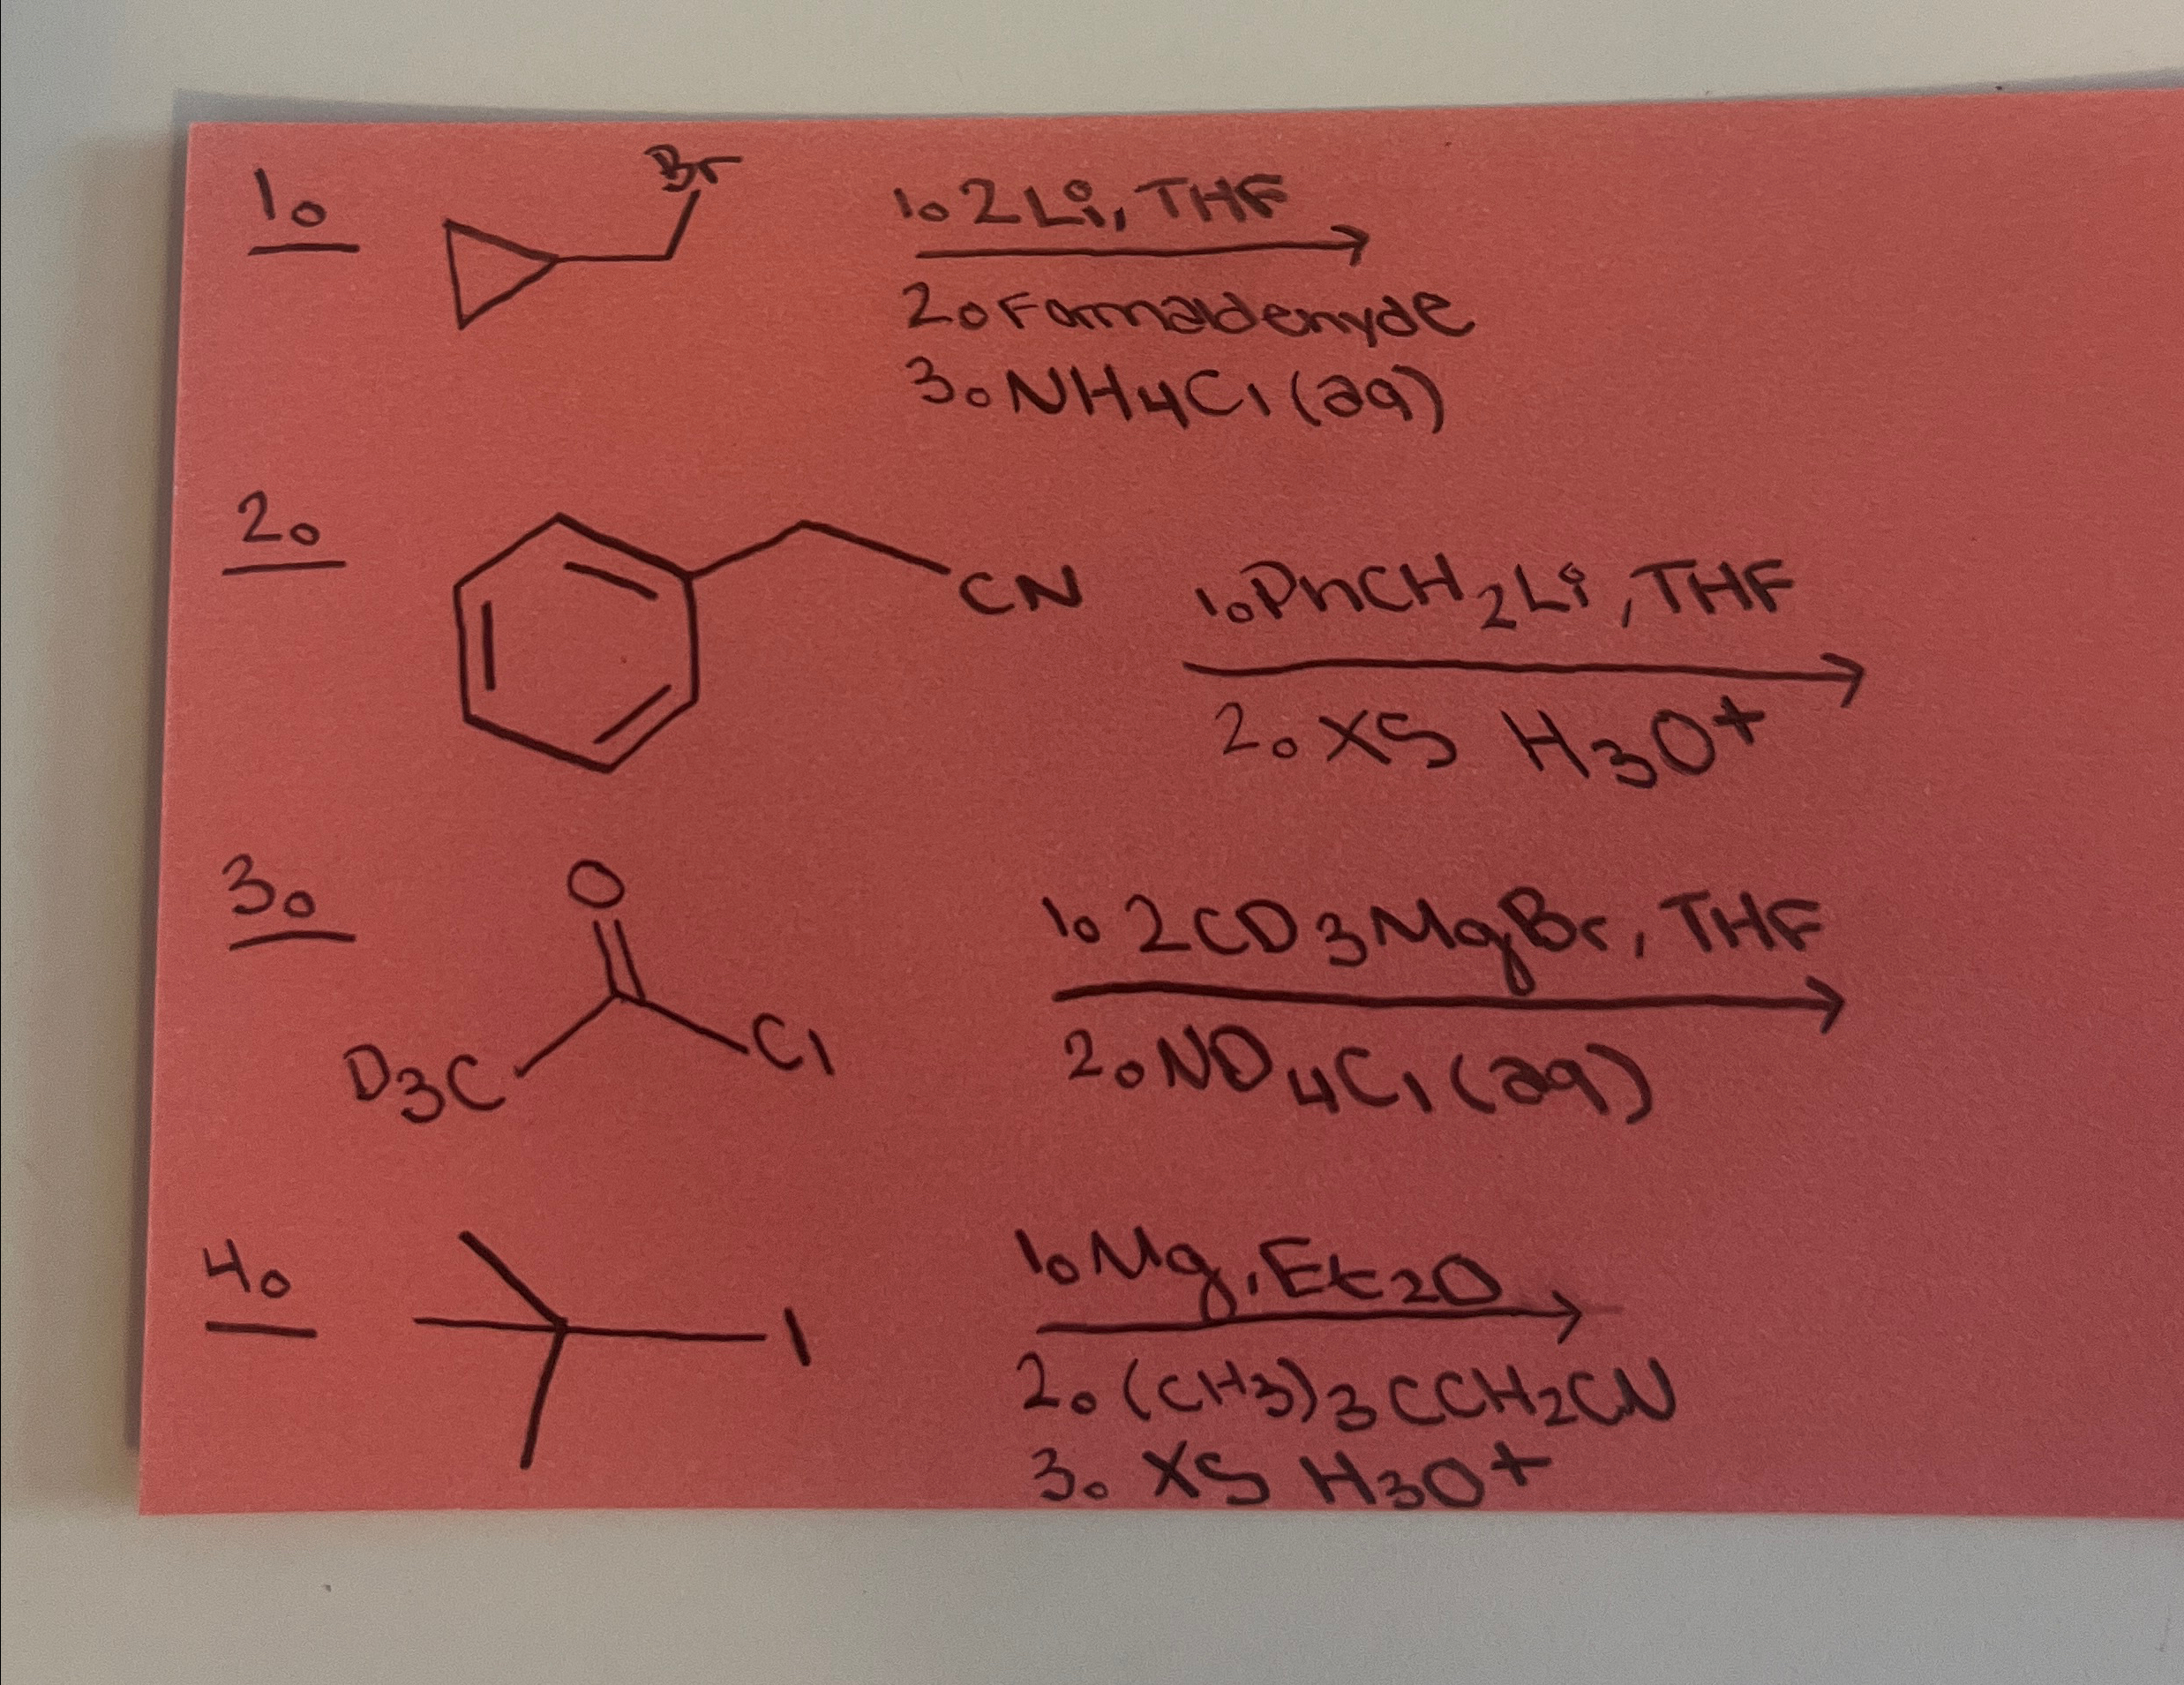 1.
Br
1. 2Li, THF
2. Formaldehyde
3. NH4Cl (aq)
2.
CN
1. PhCH2Li, THF
2. XS H3O+
3.
O
D3C
Cl
1. 2CD3MgBr, THF
2. ND4Cl (aq)
4.
I
1. Mg, Et2O
2. (CH3)3CCH2CN
3. XS H3O+